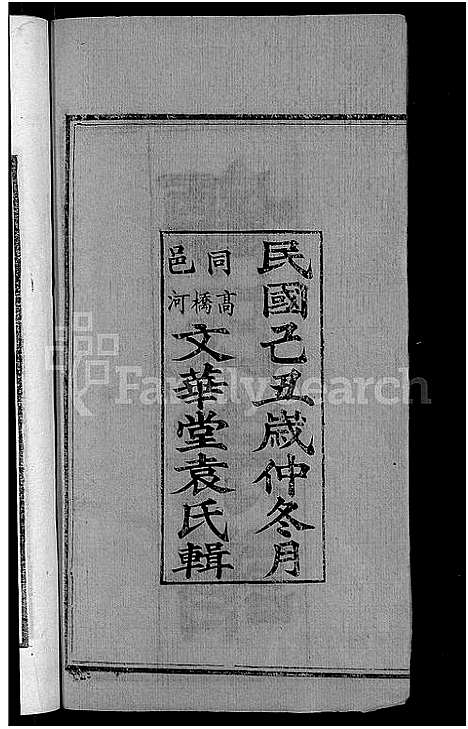 民國己丑歲仲冬月
同邑
高橋河
文華堂袁氏輯
FamilySearch